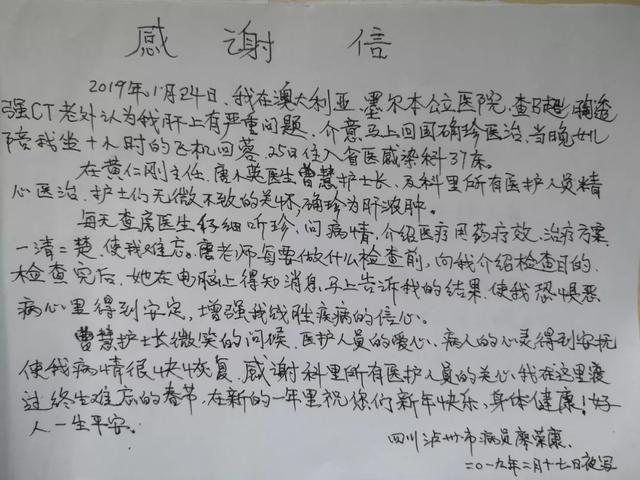 感谢信
2019年1月24日，我在澳大利亚、墨尔本公立医院，查B超、胸透
强CT老外认为我肝上有严重问题，介意马上回国确珍医治，当晚女儿
陪我坐十小时的飞机回蓉，25日住入省医感染科37床。
在黄仁刚主任、唐小英医生曹慧护士长，及科里所有医护人员精
心医治，护士们无微不致的关怀，确珍为肝浓肿。
每天查房医生仔细听珍、问病情，介绍医疗用药疗效，治疗方案
一清二楚，使我难忘。唐老师每要做什么检查前，向我介绍检查目的，
检查完后，她在电脑上得知消息，马上告诉我的结果，使我恐惧恶
病心里得到安定，增强我战胜疾病的信心。
曹慧护士长微笑的问候，医护人员的爱心，病人的心灵得到安抚
使我病情很快恢复，感谢科里所有医护人员的关心，我在这里渡
过终生难忘的春节，在新的一年里祝您们新年快乐，身体健康！好
人一生平安。
四川泸州市病员廖荣康
二〇一九年二月十七日夜写